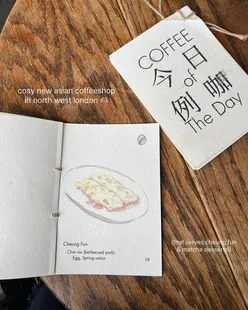 COFFEE
今日
of
例咖
The Day
cosy new asian coffeeshop
in north west london
Cheung Fun
- Char siu (barbecued pork),
Egg, Spring onion
(that serves cheung fun
& matcha desserts!)